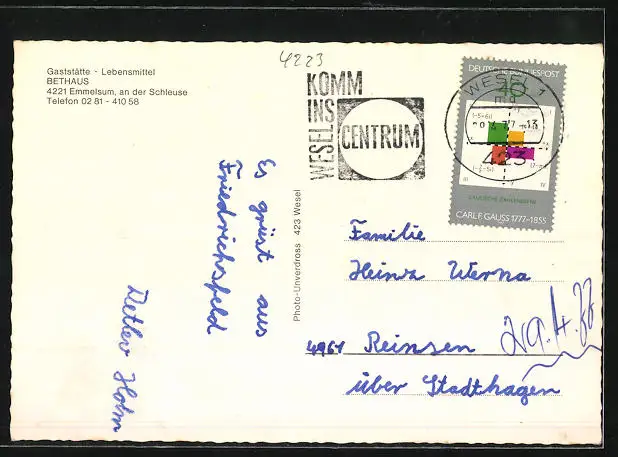 Gaststätte - Lebensmittel
BETHAUS
4221 Emmelsum, an der Schleuse
Telefon 02 81 - 410 58
4223
KOMM
INS
WESEL
CENTRUM
DEUTSCHE BUNDESPOST
40
GAUSSSCHE ZAHLENEBENE
CARL F. GAUSS 1777-1855
WESEL 1
423
Photo-Unverdross 423 Wesel
Es grüst aus
Friedrichsfeld
Detlev Holm
Familie
Heinz Werna
4961 Reinsen
über Stadthagen
29.4.77